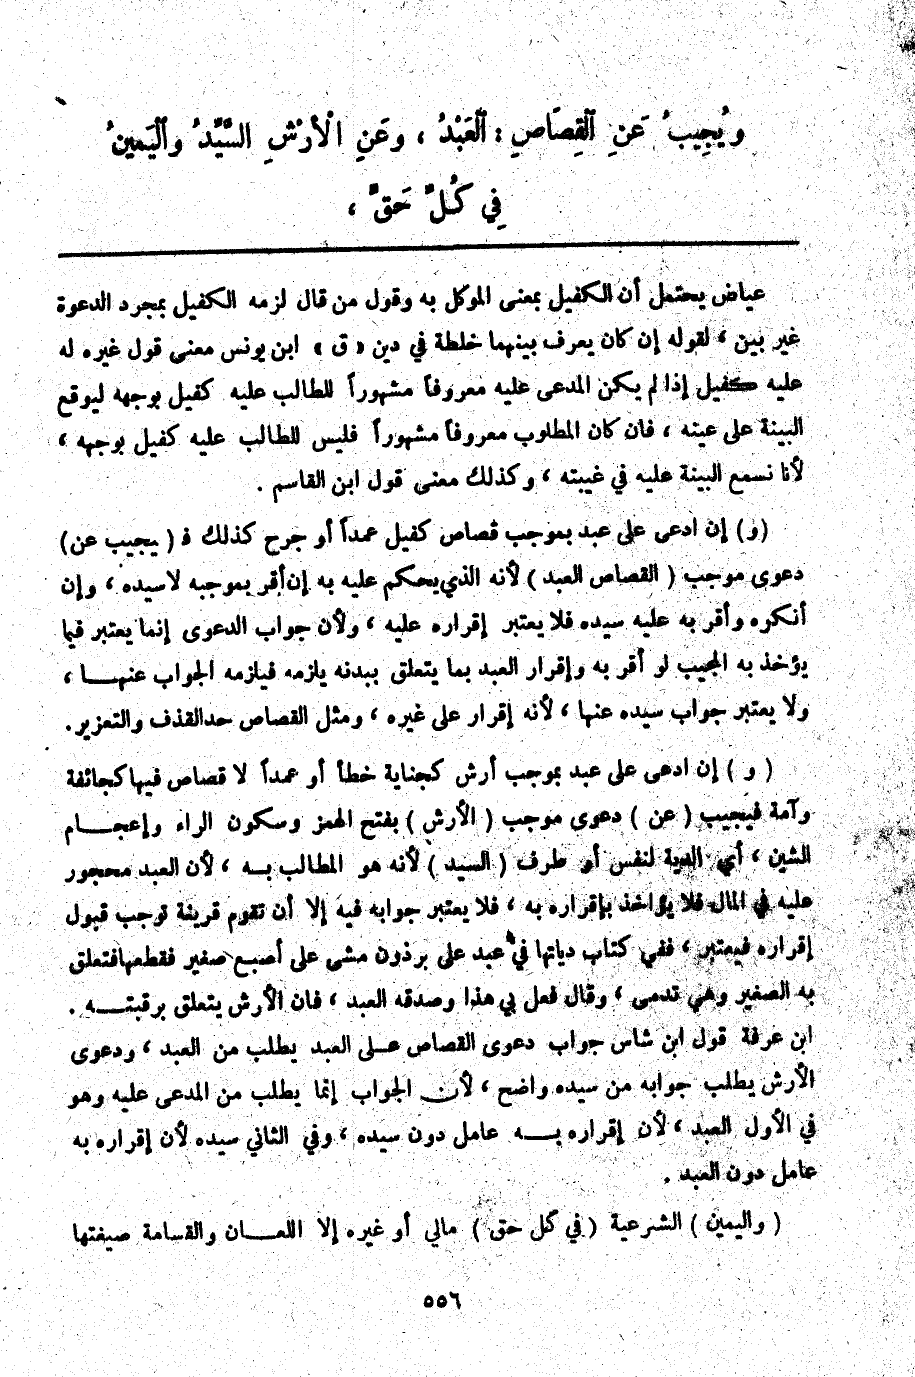 ويُجِيبُ عَنِ ٱلْقِصَاصِ : ٱلْعَبْدُ ، وعَنِ الْأَرْشِ السَّيِّدُ وٱلْيَمينُ
فِي كُلِّ حَقٍّ ،
عياض يحتمل أن الكفيل بمعنى الموكل به وقول من قال لزمه الكفيل بمجرد الدعوة
غير بين ، لقوله إن كان يعرف بينهما خلطة في دين « ق » ابن يونس معنى قول غيره له
عليه كفيل إذا لم يكن المدعى عليه معروفاً مشهوراً للطالب عليه كفيل بوجهه ليوقع
البينة على عينه ، فان كان المطلوب معروفاً مشهوراً فليس للطالب عليه كفيل بوجهه ،
لأنا نسمع البينة عليه في غيبته ، وكذلك معنى قول ابن القاسم .
(و) إن ادعى على عبد بموجب قصاص كفيل عمداً أو جرح كذلك فـ ( يجيب عن)
دعوى موجب ( القصاص العبد ) لأنه الذي يحكم عليه به إن أقر بموجبه لا سيده ، وإن
أنكره وأقر به عليه سيده فلا يعتبر إقراره عليه ، ولأن جواب الدعوى إنما يعتبر فيما
يؤخذ به المجيب لو أقر به وإقرار العبد بما يتعلق ببدنه يلزمه فيلزمه الجواب عنهـــا ،
ولا يعتبر جواب سيده عنها ، لأنه إقرار على غيره ، ومثل القصاص حد القذف والتعزير.
( و ) إن ادعى على عبد بموجب أرش كجناية خطأ أو عمداً لا قصاص فيها كجائفة
وآمة فيجيب ( عن ) دعوى موجب ( الأرش ) بفتح الهمز وسكون الراء وإعجـــام
الشين ، أي الدية لنفس أو طرف ( السيد ) لأنه هو المطالب بــه ، لأن العبد محجور
عليه في المال فلا يؤاخذ بإقراره به ، فلا يعتبر جوابه فيه إلا أن تقوم قرينة توجب قبول
إقراره فيعتبر ، ففي كتاب دياتها في عبد على برذون مشى على أصبع صغير فقطعها فتعلق
به الصغير وهي تدمى ، وقال فعل بي هذا وصدقه العبد ، فان الأرش يتعلق برقبتــــه .
ابن عرفة قول ابن شاس جواب دعوى القصاص عــلى العبد يطلب من العبد ، ودعوى
الأرش يطلب جوابه من سيده واضح ، لأن الجواب إنما يطلب من المدعى عليه وهو
في الأول العبد ، لأن إقراره بـــه عامل دون سيده ، وفي الثاني سيده لأن إقراره به
عامل دون العبد .
( واليمين ) الشرعية ( في كل حق ) مالي أو غيره إلا اللعـــان والقسامة صيغتها
٥٥٦